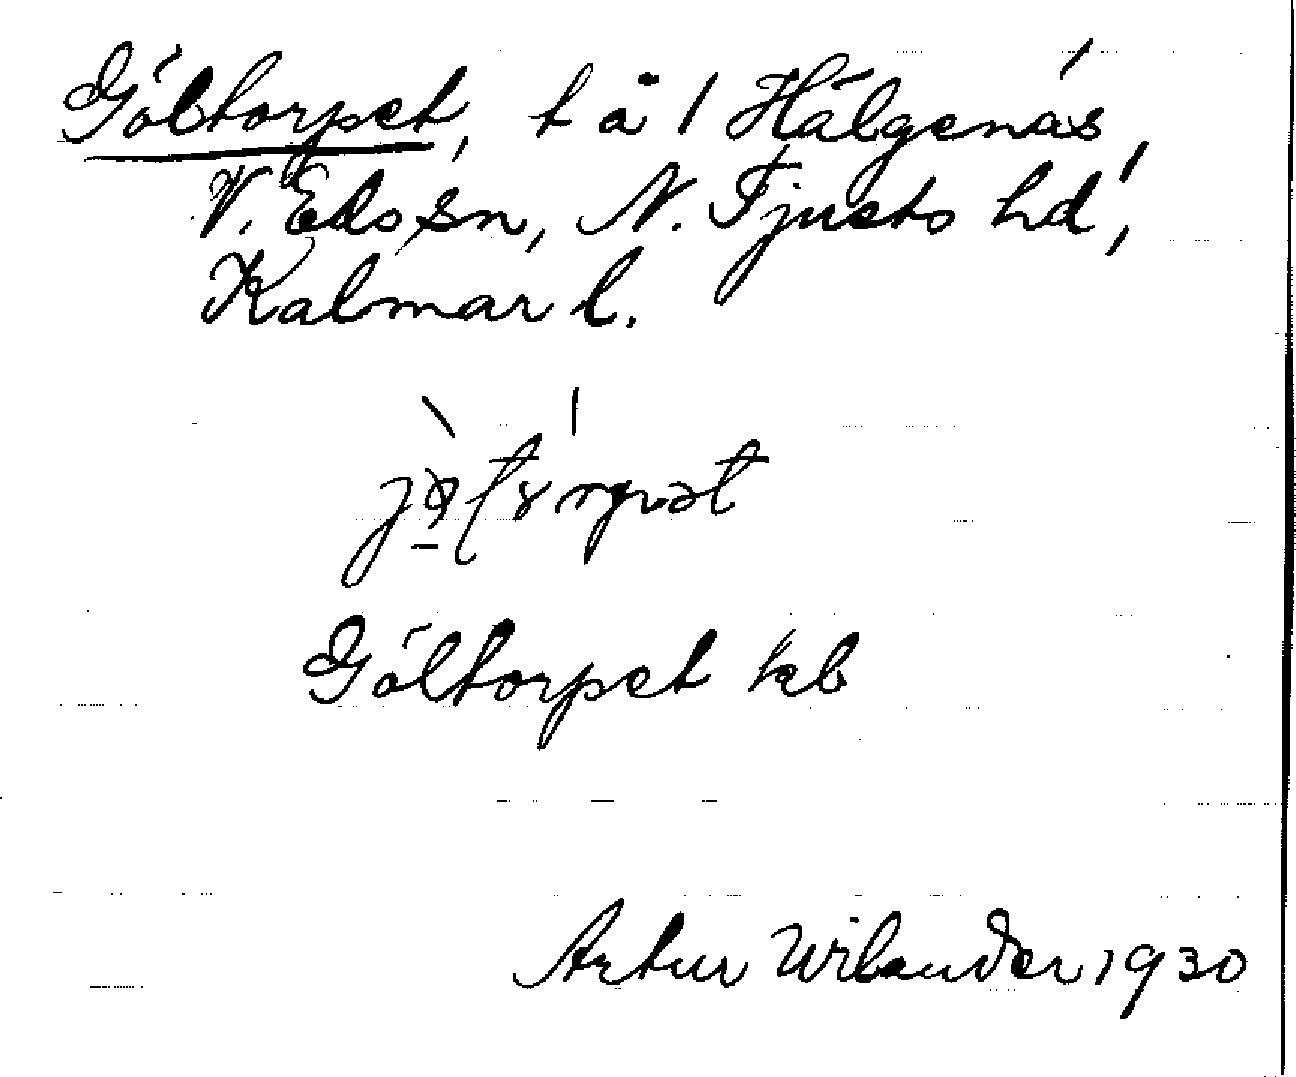 Göltorpet, t å 1 Hälgenäs,
V. Eds sn, N. Tjusts hd,
Kalmar l.
Göltorpet kb
Artur Wilander 1930